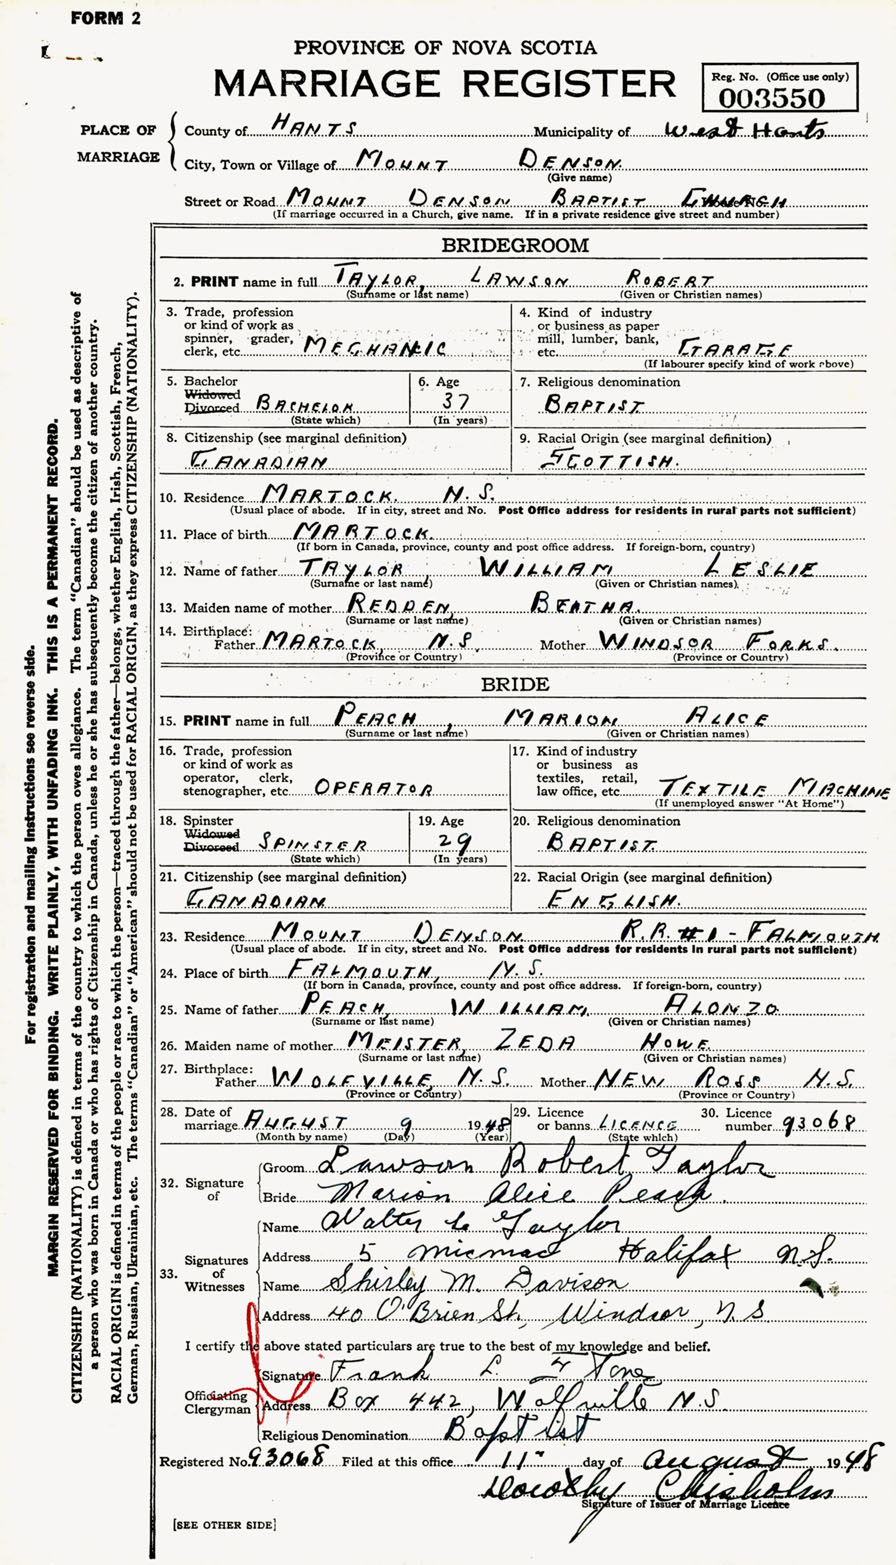 FORM 2
PROVINCE OF NOVA SCOTIA
MARRIAGE REGISTER
Reg. No. (Office use only)
003550
PLACE OF MARRIAGE
County of HANTS Municipality of West Hants
City, Town or Village of MOUNT DENSON
(Give name)
Street or Road MOUNT DENSON BAPTIST CHURCH
(If marriage occurred in a Church, give name. If in a private residence give street and number)
BRIDEGROOM
2. PRINT name in full TAYLOR, LAWSON ROBERT
(Surname or last name) (Given or Christian names)
3. Trade, profession or kind of work as spinner, grader, clerk, etc. MECHANIC
4. Kind of industry or business as paper mill, lumber, bank, etc. GARAGE
(If labourer specify kind of work above)
5. Bachelor Widowed Divorced BACHELOR
(State which)
6. Age 37
(In years)
7. Religious denomination
BAPTIST
8. Citizenship (see marginal definition)
CANADIAN
9. Racial Origin (see marginal definition)
SCOTTISH.
10. Residence MARTOCK. N.S.
(Usual place of abode. If in city, street and No. Post Office address for residents in rural parts not sufficient)
11. Place of birth MARTOCK.
(If born in Canada, province, county and post office address. If foreign-born, country)
12. Name of father TAYLOR WILLIAM LESLIE
(Surname or last name) (Given or Christian names).
13. Maiden name of mother REDDEN, BERTHA.
(Surname or last name) (Given or Christian names)
14. Birthplace: Father MARTOCK, N.S. Mother WINDSOR FORKS.
(Province or Country) (Province or Country)
BRIDE
15. PRINT name in full PEACH, MARION ALICE
(Surname or last name) (Given or Christian names)
16. Trade, profession or kind of work as operator, clerk, stenographer, etc. OPERATOR
17. Kind of industry or business as textiles, retail, law office, etc. TEXTILE MACHINE
(If unemployed answer "At Home")
18. Spinster Widowed Divorced SPINSTER
(State which)
19. Age 29
(In years)
20. Religious denomination
BAPTIST.
21. Citizenship (see marginal definition)
CANADIAN
22. Racial Origin (see marginal definition)
ENGLISH.
23. Residence MOUNT DENSON R.R. #1 - FALMOUTH
(Usual place of abode. If in city, street and No. Post Office address for residents in rural parts not sufficient)
24. Place of birth FALMOUTH, N.S.
(If born in Canada, province, county and post office address. If foreign-born, country)
25. Name of father PEACH, WILLIAM ALONZO
(Surname or last name) (Given or Christian names)
26. Maiden name of mother MEISTER, ZEDA HOWE
(Surname or last name) (Given or Christian names)
27. Birthplace: Father WOLFVILLE, N.S. Mother NEW ROSS N.S.
(Province or Country) (Province or Country)
28. Date of marriage AUGUST 9 1948
(Month by name) (Day) (Year)
29. Licence or banns LICENCE
(State which)
30. Licence number 93068
32. Signature of
Groom Lawson Robert Taylor
Bride Marion Alice Peach
33. Signatures of Witnesses
Name Walter C Taylor
Address 5 Micmac Halifax N.S.
Name Shirley M. Davison
Address 40 O'Brien St., Windsor, N S
I certify the above stated particulars are true to the best of my knowledge and belief.
Officiating Clergyman
Signature Frank L.
Address Box 442, Wolfville N.S.
Religious Denomination Baptist
Registered No. 93068 Filed at this office 11" day of August 1948
Dorothy Chisholm
Signature of Issuer of Marriage Licence
[SEE OTHER SIDE]
For registration and mailing instructions see reverse side.
MARGIN RESERVED FOR BINDING. WRITE PLAINLY, WITH UNFADING INK. THIS IS A PERMANENT RECORD.
CITIZENSHIP (NATIONALITY) is defined in terms of the country to which the person owes allegiance. The term "Canadian" should be used as descriptive of
a person who was born in Canada or who has rights of Citizenship in Canada, unless he or she has subsequently become the citizen of another country.
RACIAL ORIGIN is defined in terms of the people or race to which the person—traced through the father—belongs, whether English, Irish, Scottish, French,
German, Russian, Ukrainian, etc. The terms "Canadian" or "American" should not be used for RACIAL ORIGIN, as they express CITIZENSHIP (NATIONALITY).